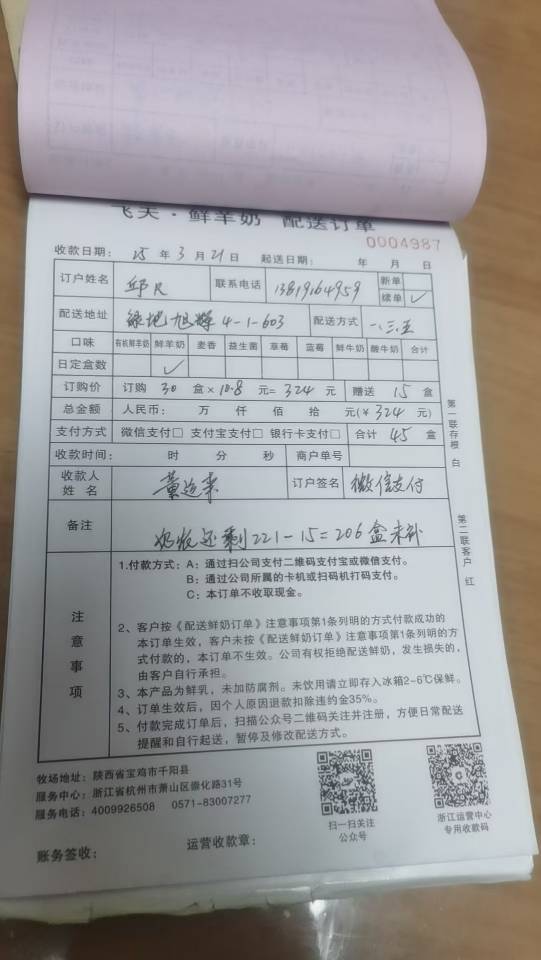 飞天·鲜羊奶 配送订单
0004987
收款日期： 25 年 3 月 21 日 起送日期： 年 月 日
订户姓名 邱 联系电话 13819164959 新单
续单 ✓
配送地址 绿地旭辉 4-1-603 配送方式 一、三、五
口味 有机鲜羊奶 鲜羊奶 麦香 益生菌 草莓 蓝莓 鲜牛奶 酸牛奶 合计
日定盒数 ✓
订购价 订购 30 盒× 10.8 元= 324 元 赠送 15 盒
总金额 人民币： 万 仟 佰 拾 元(￥ 324 元)
支付方式 微信支付□ 支付宝支付□ 银行卡支付□ 合计 45 盒
收款时间： 时 分 秒 商户单号
收款人姓名 黄 订户签名 微信支付
备注 奶牧还剩221-15=206盒未补
第一联存根 白
第二联客户 红
注意事项
1.付款方式：A：通过扫公司支付二维码支付宝或微信支付。
B：通过公司所属的卡机或扫码机打码支付。
C：本订单不收取现金。
2、客户按《配送鲜奶订单》注意事项第1条列明的方式付款成功的
本订单生效，客户未按《配送鲜奶订单》注意事项第1条列明的方
式付款的，本订单不生效。公司有权拒绝配送鲜奶，发生损失的，
由客户自行承担。
3、本产品为鲜乳，未加防腐剂。未饮用请立即存入冰箱2-6℃保鲜。
4、订单生效后，因个人原因退款扣除违约金35%。
5、付款完成订单后，扫描公众号二维码关注并注册，方便日常配送
提醒和自行起送，暂停及修改配送方式。
牧场地址：陕西省宝鸡市千阳县
服务中心：浙江省杭州市萧山区崇化路31号
服务电话：4009926508 0571-83007277
扫一扫关注
公众号
浙江运营中心
专用收款码
账务签收： 运营收款章：